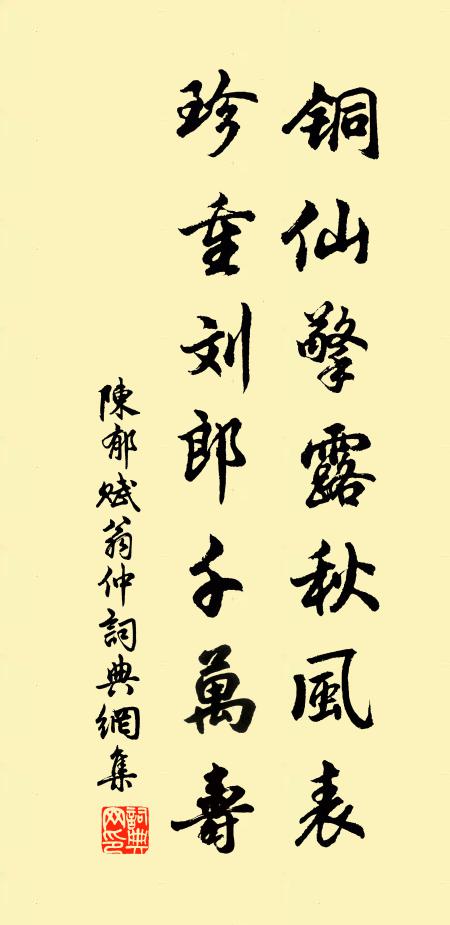 铜仙擎露秋风表
珍重刘郎千萬壽
陳郁赋翁仲詞典網集
詞典网印